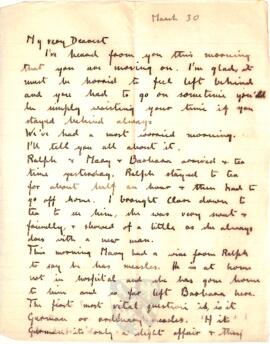 March 30
My very Dearest
I've heard from you this morning
that you are moving on. I'm glad, it
must be horrid to feel left behind
and you had to go on sometime you'd
be simply wasting your time if you
stayed behind always.
We've had a most worried morning.
I'll tell you all about it.
Ralph & Mary & Barbara arrived &
tea time yesterday. Ralph stayed to tea
for about half an hour & then had to
go off home. I brought Clare down to
tea to see him, she was very sweet &
friendly, & showed off a little as she always
does with a new man.
This morning Mary had a wire from Ralph
to say he has measles. He is at home
not in hospital and she has gone home
to him and is for left Barbara here.
The first most vital question is, is it
German or ordinary measles. If it
German it's only a slight affair & they